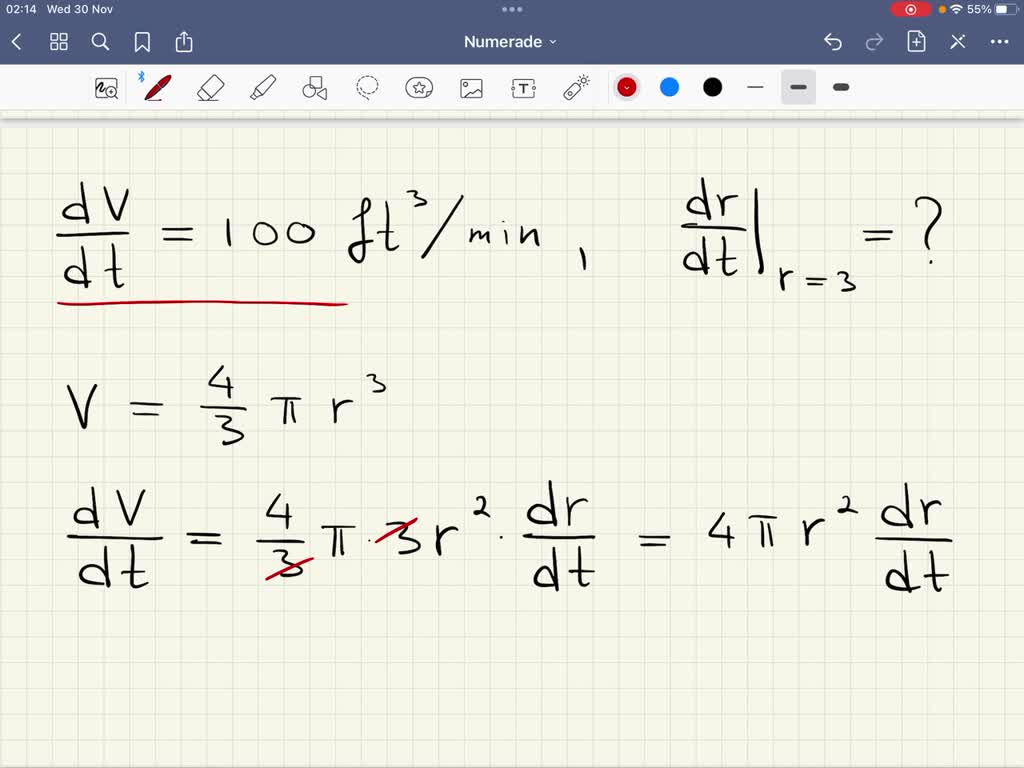 02:14 Wed 30 Nov 55%
Numerade
T
dV/dt = 100 ft³/min, dr/dt|r=3 = ?
V = 4/3 π r³
dV/dt = 4/3 π · 3r² · dr/dt = 4πr² dr/dt